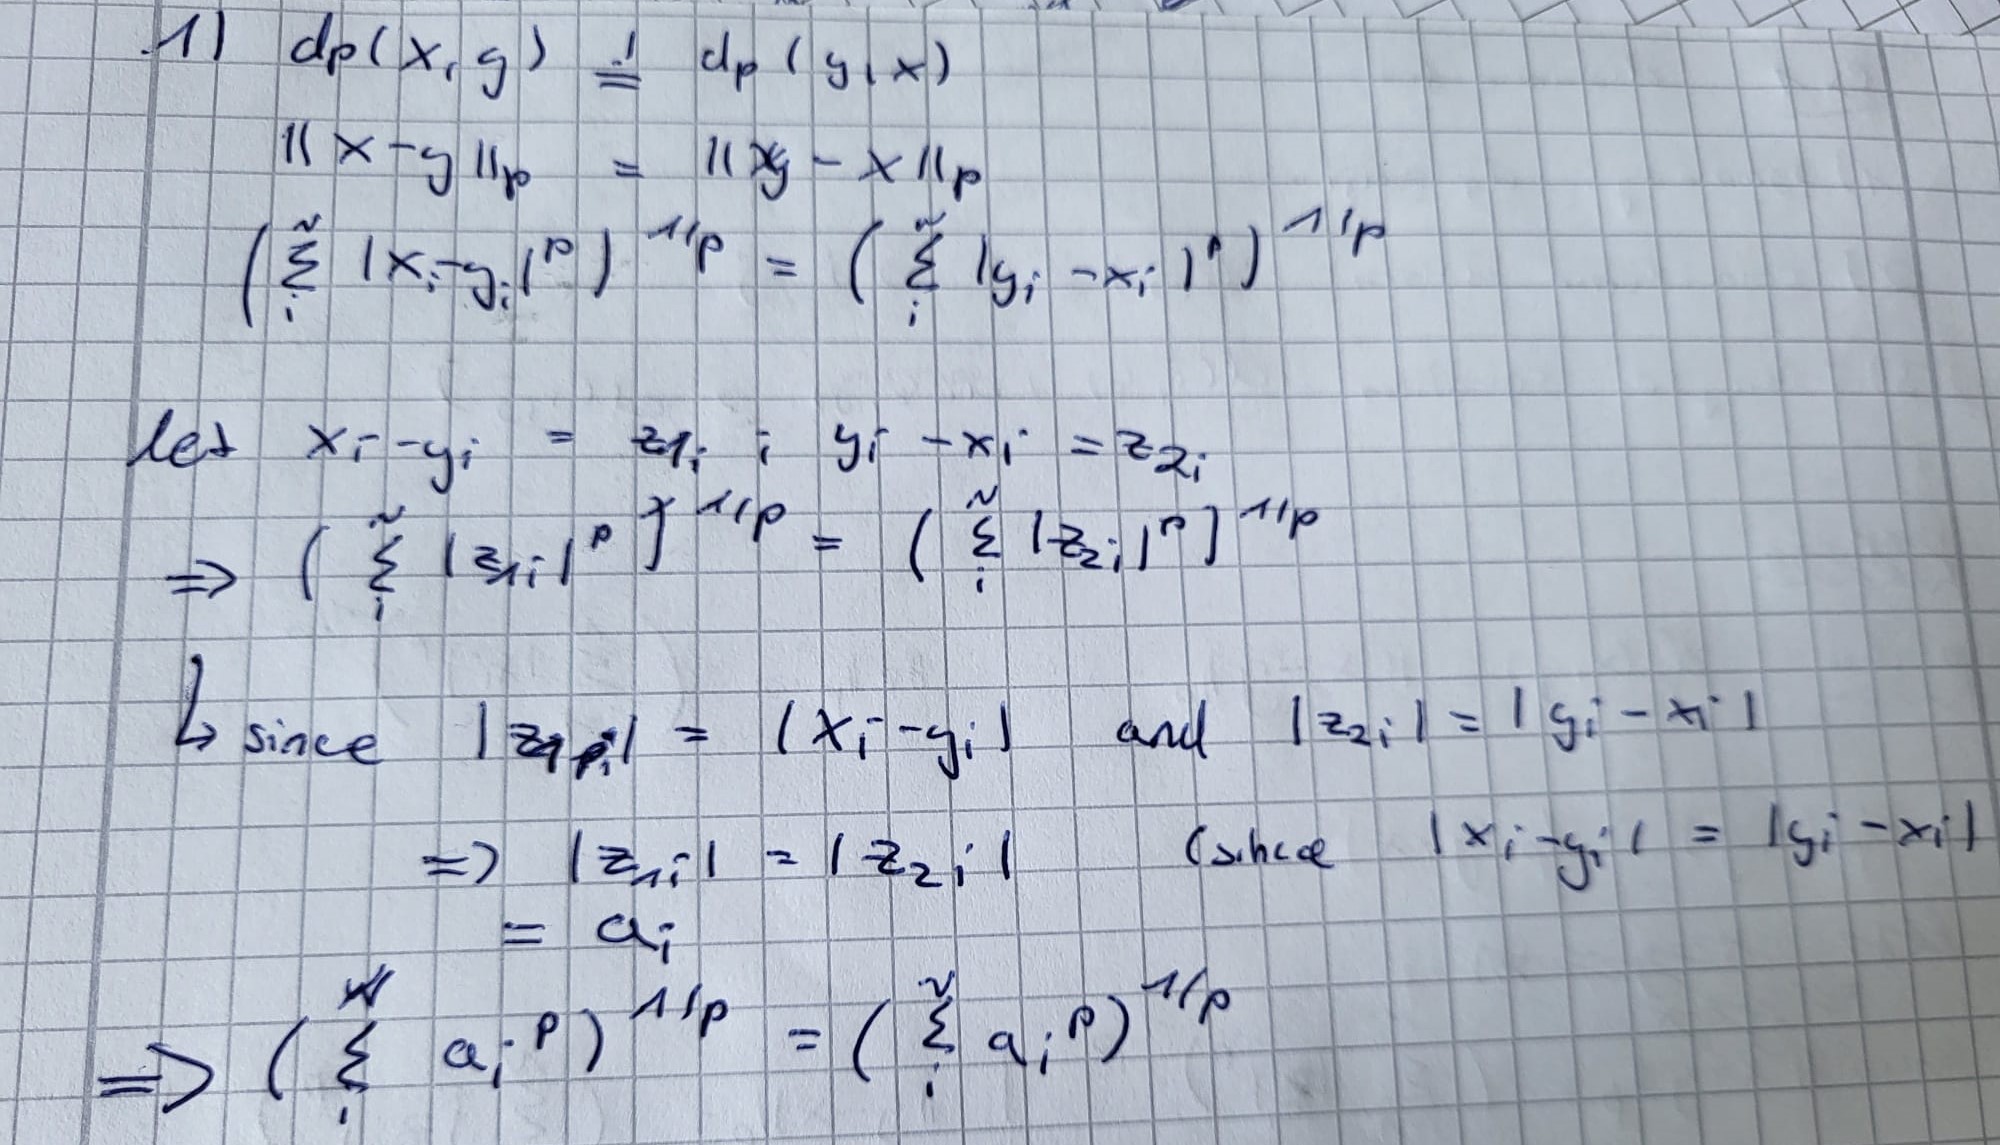 1) dp(x,y) =! dp(y,x)
||x-y||p = ||y-x||p
(Σ_i^N |x_i-y_i|^p)^1/p = (Σ_i^N |y_i-x_i|^p)^1/p
let x_i-y_i = z_1i ; y_i-x_i = z_2i
=> (Σ_i^N |z_1i|^p]^1/p = (Σ_i^N |z_2i|^p]^1/p
↳ since |z_1i| = |x_i-y_i| and |z_2i| = |y_i-x_i|
=> |z_1i| = |z_2i| (since |x_i-y_i| = |y_i-x_i|
= a_i
=> (Σ_i^N a_i^p)^1/p = (Σ_i^N a_i^p)^1/p